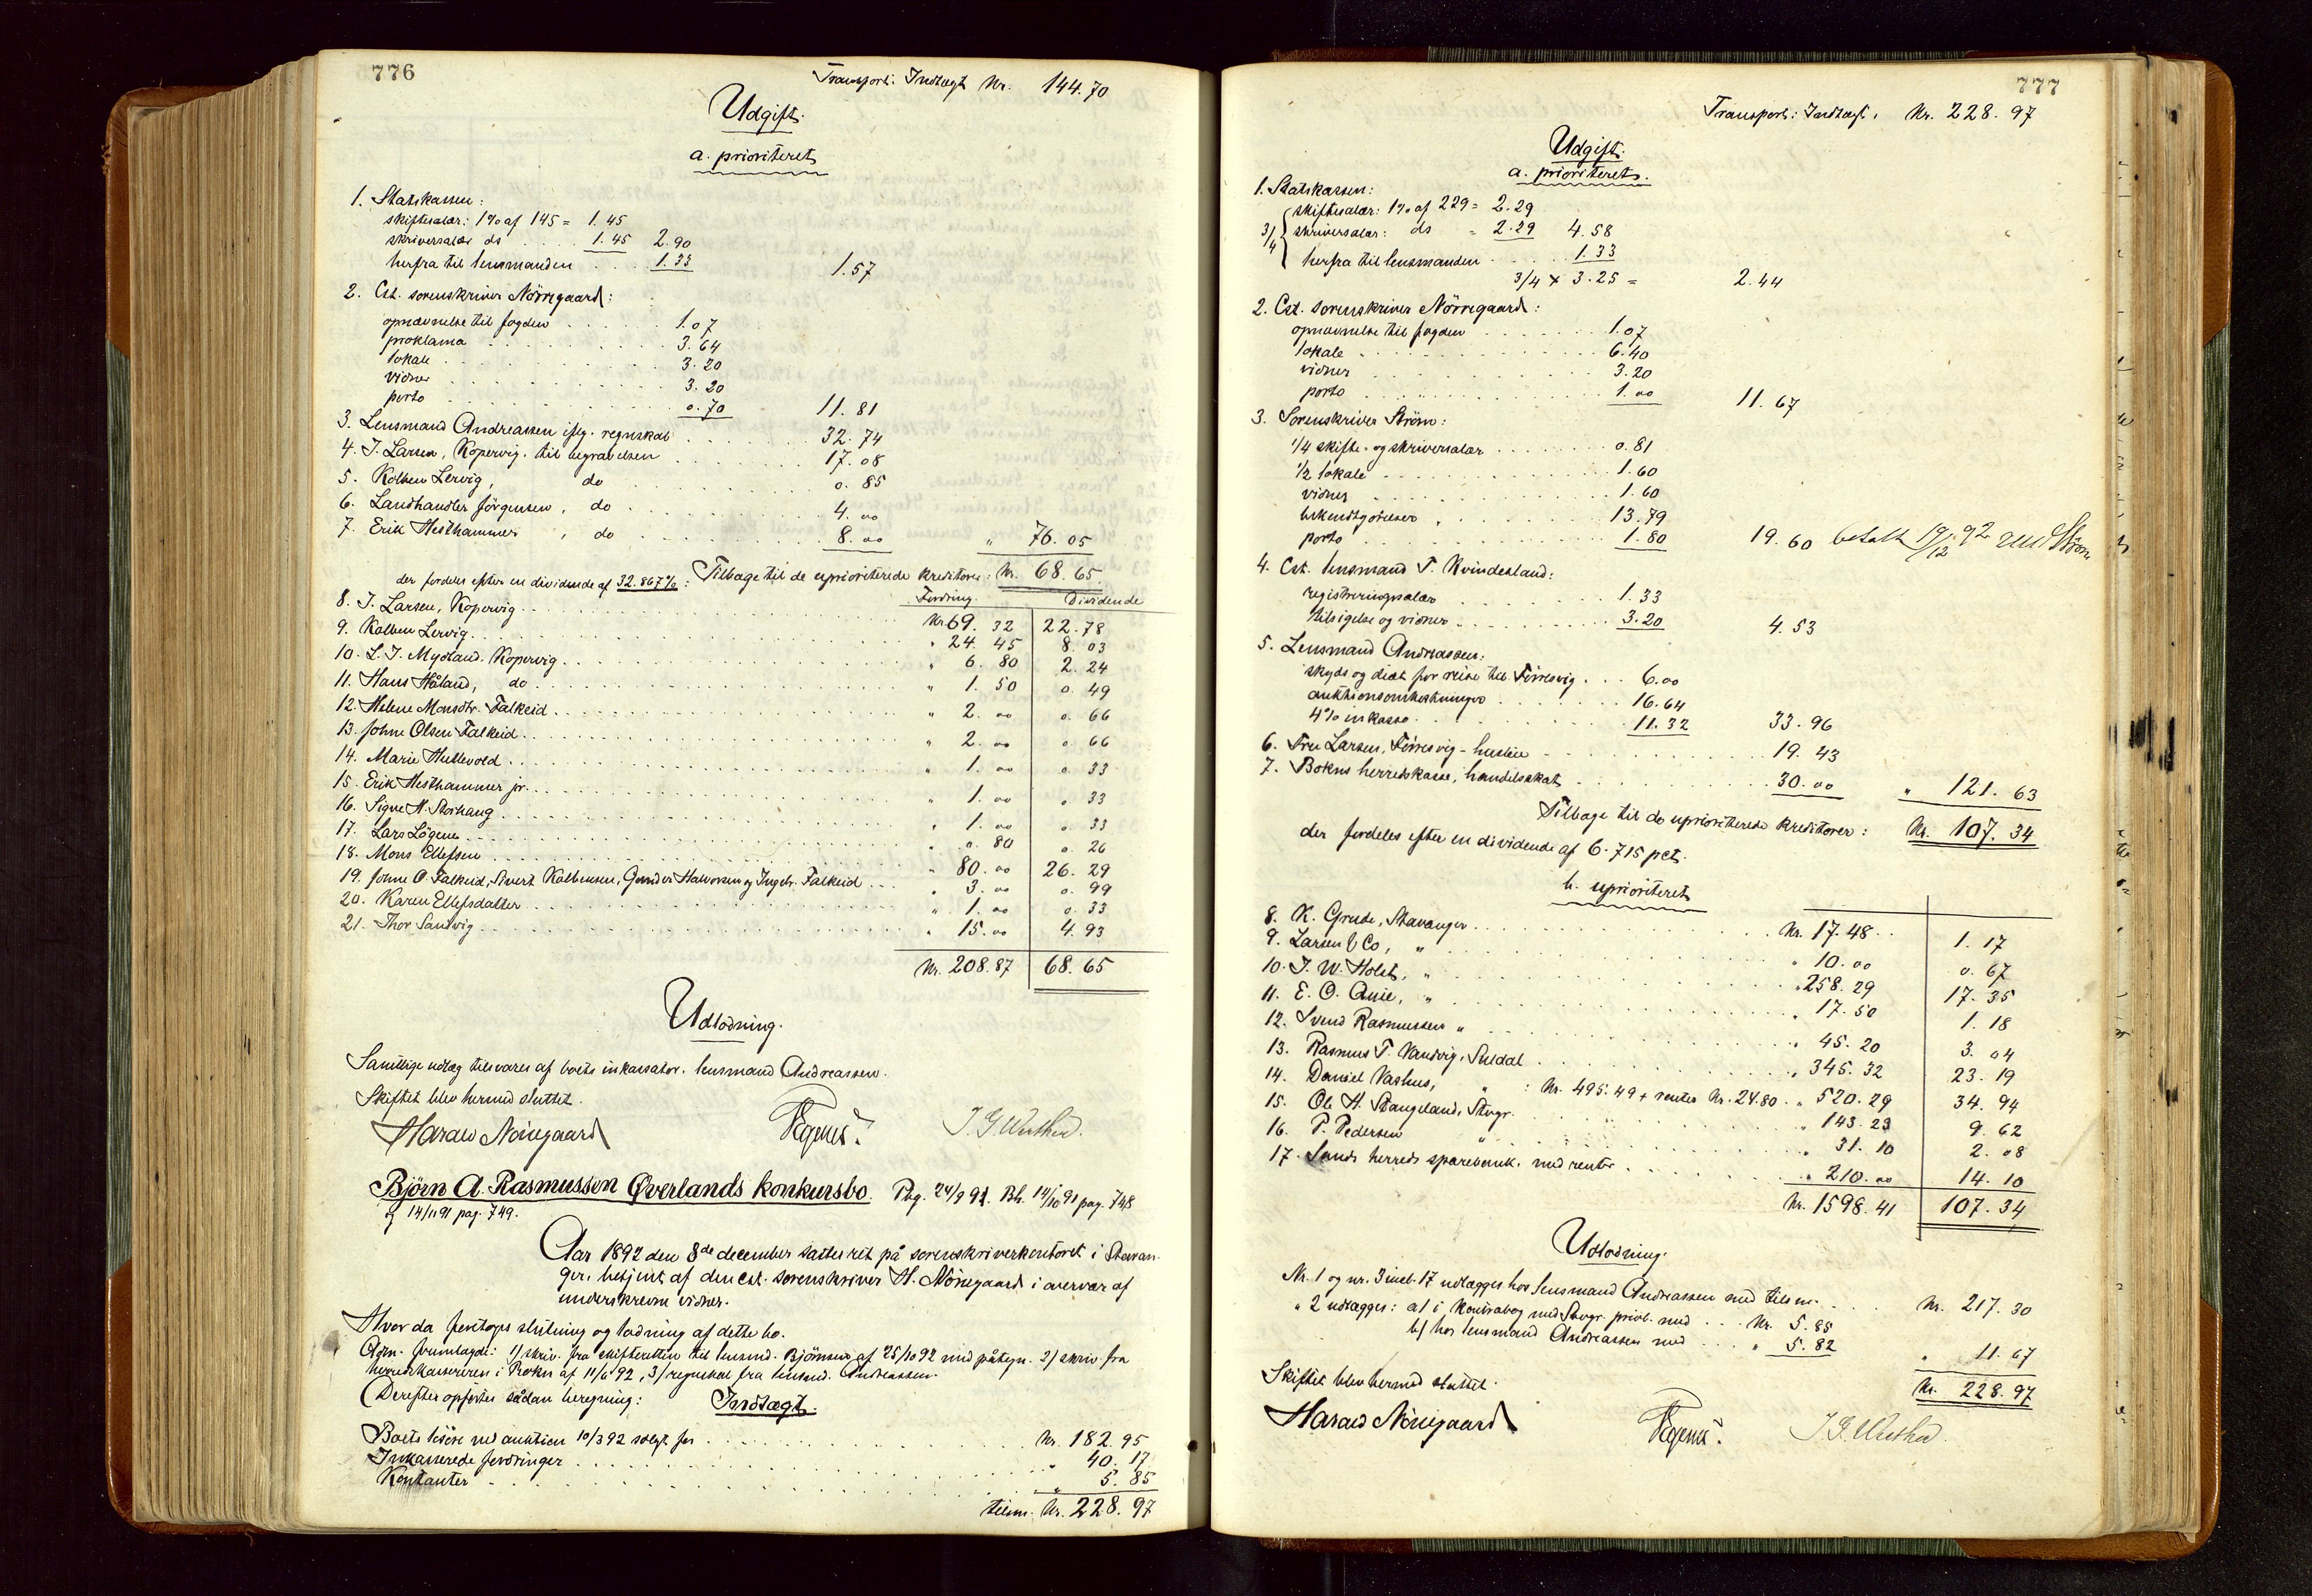 776
Transport: Indtægt Kr. 144.70
Udgift.
a. prioriteret
1. Statskassen:
skiftesalær: 1% af 145 = 1.45
skriversalær do . . . . 1.45 2.90
herfra til lensmanden . . . 1.33 1.57
2. Cst. sorenskriver Nörregaard:
opnævnelse til fogden . . . . . 1.07
proklama . . . . . 3.64
lokale . . . . . 3.20
vidner . . . . . 3.20
porto . . . . . 0.70 11.81
3. Lensmand Andreassen iflg. regnskab . . . . . 32.74
4. J. Larsen, Kopervig. til begravelsen . . . . . 17.08
5. Kolben Lervig, do . . . . . 0.85
6. Landhandler Jörgensen, do . . . . . 4.00
7. Erik Hesthammer, do . . . . . 8.00 " 76.05
Tilbage til de uprioriterede kreditorer: Kr. 68.65
der fordeles efter en dividende af 32.867%:
Fordring. Dividende
8. J. Larsen, Kopervig . . . . . Kr. 69.32 22.78
9. Kolben Lervig . . . . . " 24.45 8.03
10. L. J. Mydland. Kopervig . . . . . " 6.80 2.24
11. Hans Håland, do . . . . . " 1.50 0.49
12. Helene Monsdtr. Falkeid . . . . . " 2.00 0.66
13. Johne Olsen Falkeid . . . . . " 2.00 0.66
14. Marie Hettevold . . . . . " 1.00 0.33
15. Erik Hesthammer jr. . . . . . " 1.00 0.33
16. Signe H. Storhaug . . . . . " 1.00 0.33
17. Lars Lögene . . . . . " 0.80 0.26
18. Mons Ellefsen . . . . . " 80.00 26.29
19. Johne O. Falkeid, Sivert Kolbensen, Gunder Halvorsen og Ingebr. Falkeid . . . " 3.00 0.99
20. Karen Ellefsdatter . . . . . " 1.00 0.33
21. Thor Sandvig . . . . . " 15.00 4.93
Kr. 208.87 68.65
Udlodning.
Samtlige udlæg tilsvares af boets inkassator. lensmand Andreassen.
Skiftet blev hermed sluttet.
Harald Nörregaard
Björn A. Rasmussen Øverlands konkursbo. Pbg. 24/9 91. Bh. 14/10 91 pag. 748
og 14/11 91 pag. 749.
Aar 1892 den 8de december sattes ret på sorenskriverkontoret i Stavan-
ger, betjent af den cst. sorenskriver H. Nörregaard i overvær af
underskrevne vidner.
Hvor da foretoges slutning og lodning af dette bo.
Adm. fremlagde: 1/ skriv. fra skifteretten til lensmd. Björnsen af 25/10 92 med påtegn. 2/ skriv fra
herredskassereren i Bokn af 11/6 92, 3/ regnskab fra lensmd. Andreassen.
Derefter opførtes sådan beregning: Indtægt.
Boets løsöre ved auktion 10/3 92 solgt for . . . . . Kr. 182.95
Inkasserede fordringer . . . . . " 40.17
Kontanter . . . . . " 5.85
tilsm. Kr. 228.97
777
Transport: Indtægt. Kr. 228.97
Udgift.
a. prioriteret.
1. Statskassen:
skiftesalær: 1% af 229 = 2.29
3/4 skriversalær: do = 2.29 4.58
herfra til lensmanden . . . . . 1.33
3/4 x 3.25 = 2.44
2. Cst. sorenskriver Nörregaard:
opnævnelse til fogden . . . . . 1.07
lokale . . . . . 6.40
vidner . . . . . 3.20
porto . . . . . 1.00 11.67
3. Sorenskriver Ström:
1/4 skifte- og skriversalær . . . . . 0.81
1/2 lokale . . . . . 1.60
vidner . . . . . 1.60
bekendtgörelser . . . . . 13.79
porto . . . . . 1.80 19.60 betalt 19/12 92 Ström
4. Cst. lensmand T. Kvindesland:
registreringssalær . . . . . 1.33
tilsigelse og vidner . . . . . 3.20 4.53
5. Lensmand Andreassen:
skyds og diæt for reise til Førresvig . . . 6.00
auktionsomkostninger . . . . . 16.64
4% inkasso . . . . . 11.32 33.96
6. Fru Larsen, Førresvig - husleie . . . . . 19.43
7. Bokns herredskasse, handelsskat . . . . . 30.00 " 121.63
Tilbage til de uprioriterede kreditorer: Kr. 107.34
der fordeles efter en dividende af 6.715 pct.
b. uprioriteret
8. K. Grude, Stavanger . . . . . Kr. 17.48 1.17
9. Larsen & Co, " . . . . . " 10.00 0.67
10. J. W. Holst, " . . . . . " 258.29 17.35
11. E. O. Quie, " . . . . . " 17.50 1.18
12. Svend Rasmussen " . . . . . " 45.20 3.04
13. Rasmus T. Vandvig, Suldal . . . . . " 345.32 23.19
14. Daniel Vashus, " : Kr. 495.49 + renter Kr. 24.80 . " 520.29 34.94
15. Ole H. Stangeland, Stvgr. . . . . . " 143.23 9.62
16. P. Pedersen " . . . . . " 31.10 2.08
17. Sands herreds sparebank. med renter . . . . . " 210.00 14.10
Kr. 1598.41 107.34
Udlodning.
Nr. 1 og nr. 3 incl. 17 udlægges hos lensmand Andreassen med tilsm. . . . . Kr. 217.30
" 2 udlægges: a/ i Kontrabog med Stvgr. privb. med . . . Kr. 5.85
b/ hos lensmand Andreassen med . . . " 5.82 " 11.67
Kr. 228.97
Skiftet blev hermed sluttet.
Harald Nörregaard